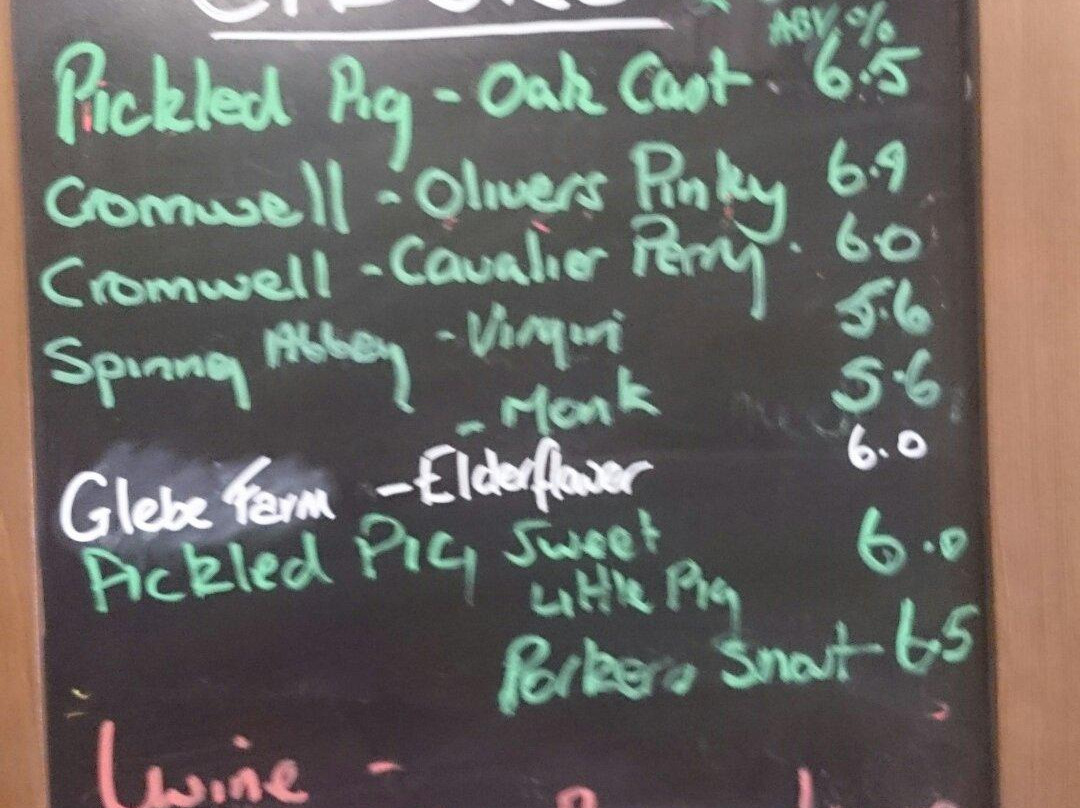 ABV %
Pickled Pig - Oak Cast 6.5
Cromwell - Olivers Pinky 6.9
Cromwell - Cavalier Perry. 6.0
Spinny Abbey - Virgin 5.6
- Monk 5.6
Glebe Farm - Elderflower 6.0
Pickled Pig Sweet 6.0
Little Pig
Porkers Snout 6.5
Wine -